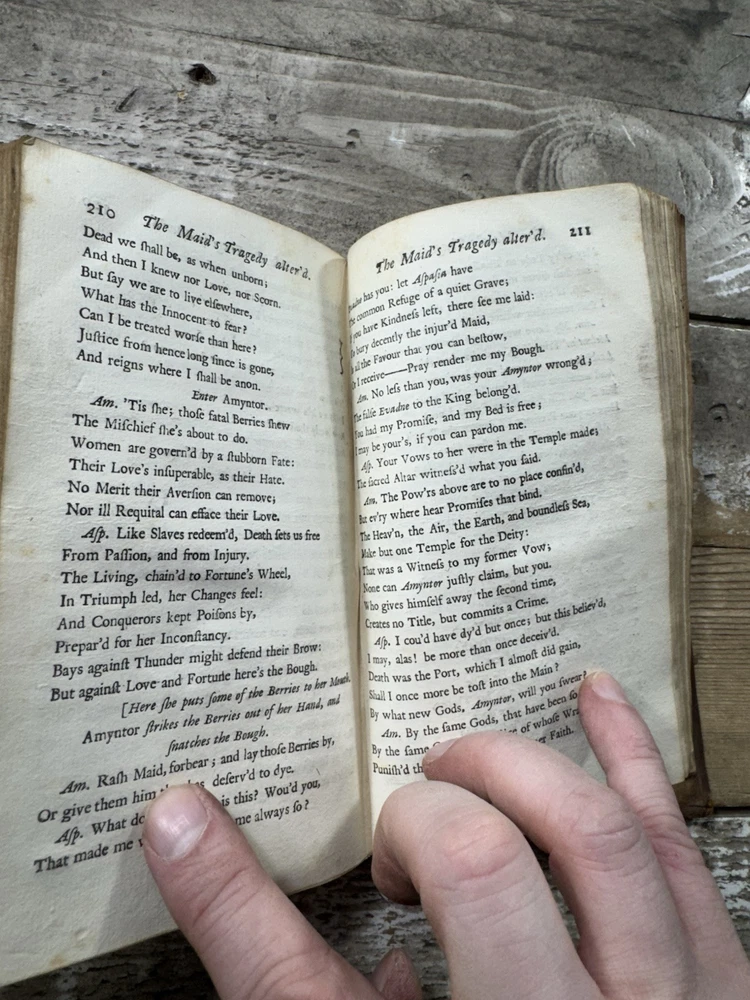 210 The Maid's Tragedy alter'd.
Dead we ſhall be, as when unborn;
And then I knew nor Love, nor Scorn.
But ſay we are to live elſewhere,
What has the Innocent to fear?
Can I be treated worſe than here?
Juſtice from hence long ſince is gone,
And reigns where I ſhall be anon.
Enter Amyntor.
Am. 'Tis ſhe; thoſe fatal Berries ſhew
The Miſchief ſhe's about to do.
Women are govern'd by a ſtubborn Fate:
Their Love's inſuperable, as their Hate.
No Merit their Averſion can remove;
Nor ill Requital can efface their Love.
Aſp. Like Slaves redeem'd, Death ſets us free
From Paſſion, and from Injury.
The Living, chain'd to Fortune's Wheel,
In Triumph led, her Changes feel:
And Conquerors kept Poiſons by,
Prepar'd for her Inconſtancy.
Bays againſt Thunder might defend their Brow:
But againſt Love and Fortune here's the Bough.
[Here ſhe puts ſome of the Berries to her Mouth.
Amyntor ſtrikes the Berries out of her Hand, and
ſnatches the Bough.
Am. Raſh Maid, forbear; and lay thoſe Berries by,
Or give them him deſerv'd to dye.
Aſp. What is this? Wou'd you,
That made me me always ſo?
The Maid's Tragedy alter'd. 211
has you: let Aſpaſia have
common Refuge of a quiet Grave;
you have Kindneſs left, there ſee me laid:
bury decently the injur'd Maid,
all the Favour that you can beſtow,
I receive——Pray render me my Bough.
Am. No leſs than you, was your Amyntor wrong'd;
The falſe Evadne to the King belong'd.
You had my Promiſe, and my Bed is free;
I may be your's, if you can pardon me.
Aſp. Your Vows to her were in the Temple made;
The ſacred Altar witneſs'd what you ſaid.
Am. The Pow'rs above are to no place confin'd,
But ev'ry where hear Promiſes that bind.
The Heav'n, the Air, the Earth, and boundleſs Sea,
Make but one Temple for the Deity:
That was a Witneſs to my former Vow;
None can Amyntor juſtly claim, but you.
Who gives himſelf away the ſecond time,
Creates no Title, but commits a Crime.
Aſp. I cou'd have dy'd but once; but this believ'd,
I may, alas! be more than once deceiv'd.
Death was the Port, which I almoſt did gain,
Shall I once more be toſt into the Main?
By what new Gods, Amyntor, will you ſwear?
Am. By the ſame Gods, that have been
By the ſame of whoſe
Puniſh'd Faith.